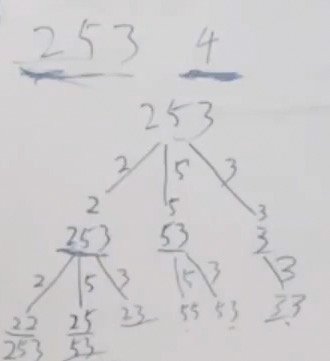 253 4
253
2 5 3
2 5 3
253 53 3
2 5 3 5 3 3
22 25 23 55 53 33
253 53